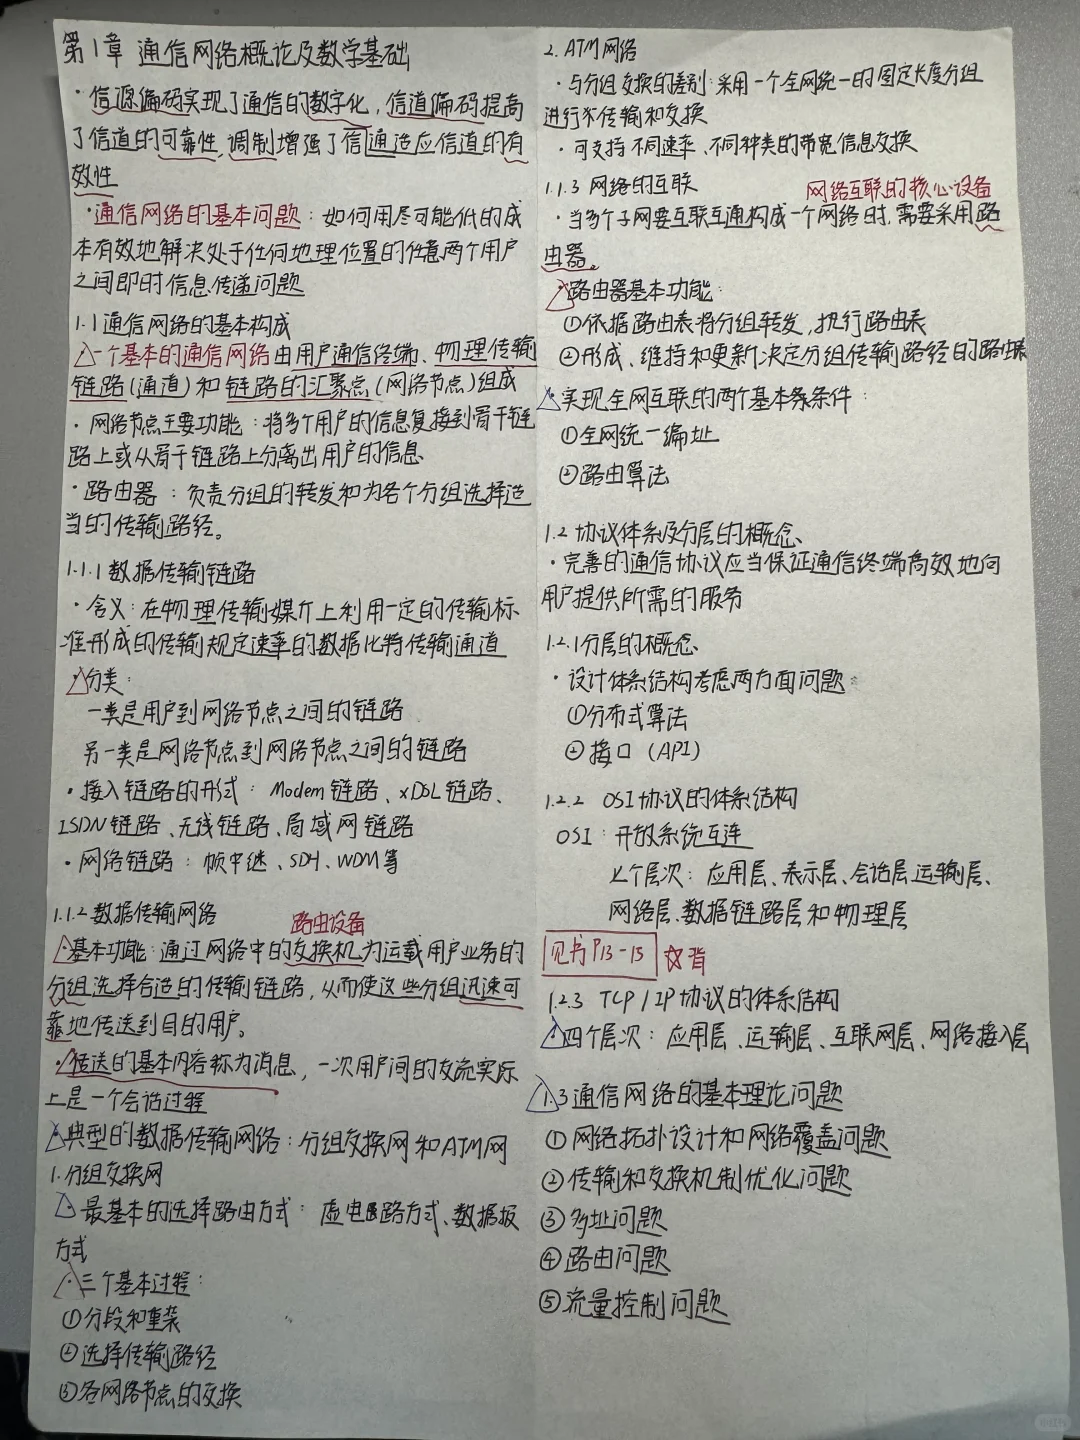 第1章 通信网络概论及数学基础
·信源编码实现了通信的数字化,信道编码提高
了信道的可靠性,调制增强了信通适应信道的有
效性
·通信网络的基本问题：如何用尽可能低的成
本有效地解决处于任何地理位置的任意两个用户
之间即时信息传递问题
1.1通信网络的基本构成
△一个基本的通信网络由用户通信终端、物理传输
链路(通道)和链路的汇聚点(网络节点)组成
·网络节点主要功能：将多个用户的信息复接到骨干链
路上或从骨干链路上分离出用户的信息
·路由器：负责分组的转发和为各个分组选择适
当的传输路经。
1.1.1数据传输链路
·含义：在物理传输媒介上利用一定的传输标
准形成的传输规定速率的数据比特传输通道
△分类：
一类是用户到网络节点之间的链路
另一类是网络节点到网络节点之间的链路
·接入链路的形式：Modem链路、xDSL链路、
ISDN链路、无线链路、局域网链路
·网络链路：帧中继、SDH、WDM等
1.1.2数据传输网络
路由设备
△基本功能:通过网络中的交换机为运载用户业务的
分组选择合适的传输链路,从而使这些分组迅速可
靠地传送到目的用户。
·传送的基本内容称为消息，一次用户间的交流实际
上是一个会话过程
△典型的数据传输网络：分组交换网和ATM网
1.分组交换网
△最基本的选择路由方式：虚电路方式、数据报
方式
△三个基本过程：
①分段和重装
②选择传输路经
③各网络节点的交换
2. ATM网络
·与分组交换的差别:采用一个全网统一的固定长度分组
进行传输和交换
·可支持不同速率、不同种类的带宽信息交换
1.1.3 网络的互联
网络互联的核心设备
·当多个子网要互联互通构成一个网络时,需要采用路
由器。
△路由器基本功能：
①依据路由表将分组转发，执行路由表
②形成、维持和更新决定分组传输路经的路由表
△实现全网互联的两个基本条件：
①全网统一编址
②路由算法
1.2 协议体系及分层的概念
·完善的通信协议应当保证通信终端高效地向
用户提供所需的服务
1.2.1分层的概念
·设计体系结构考虑两方面问题：
①分布式算法
②接口（API）
1.2.2 OSI协议的体系结构
OSI：开放系统互连
七个层次：应用层、表示层、会话层、运输层、
网络层、数据链路层和物理层
见书P13-15 ☆背
1.2.3 TCP/IP协议的体系结构
△四个层次：应用层、运输层、互联网层、网络接入层
△1.3通信网络的基本理论问题
①网络拓扑设计和网络覆盖问题
②传输和交换机制优化问题
③多址问题
④路由问题
⑤流量控制问题